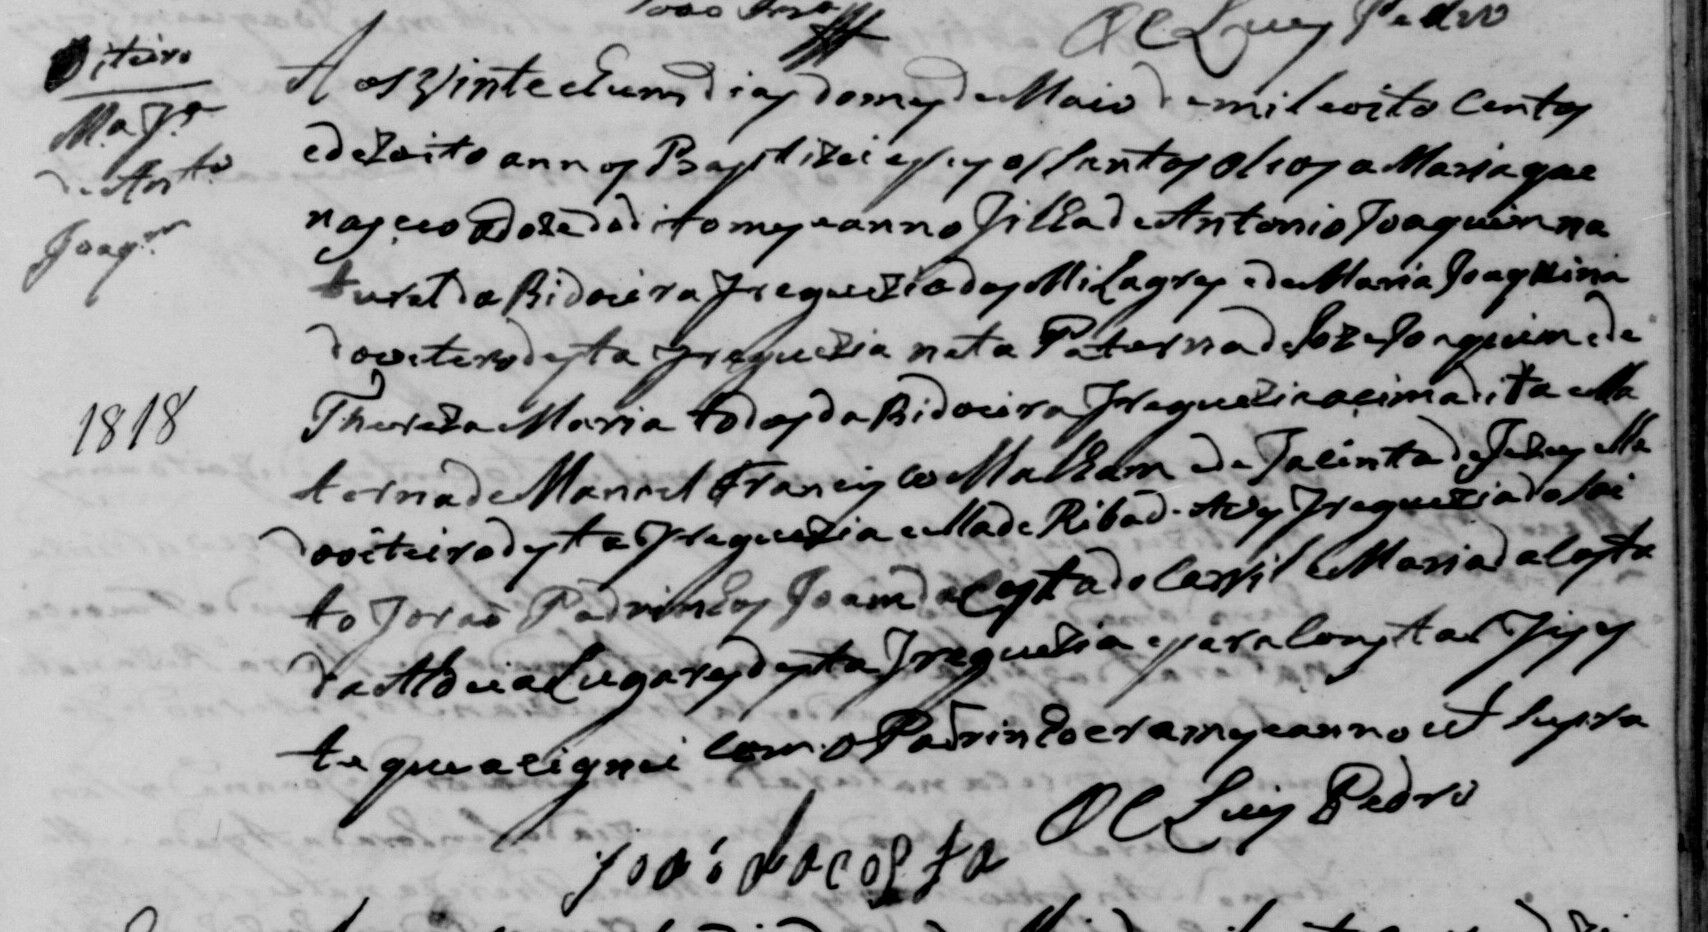 O C Luis Pedro
Oiteiro
M.a F.a
de Ant.o
Joaq.m
1818
Aos vinte e hum dias do mes de Maio de mil e oito Centos
e dezoito annos Baptizei e pus os Santos oleos a Maria que
nasceo a doze do dito mes e anno Filha de Antonio Joaquim na
tural da Bidoeira Freguezia dos Milagres e de Maria Joaquina
do oiteiro desta Freguezia neta Paterna de Joze Joaquim e de
Thereza Maria todos da Bidoeira Freguezia acima dita e Ma
terna de Manoel Francisco Malham e de Jacinta de Jezus elle
do oiteiro desta Freguezia e ella de Riba d'Aves Freguezia do Soi
to Forao Padrinhos Joam da Costa do Carril e Maria da Costa
da Aldeia Lugares desta Freguezia e para Constar Fis es
te que acignei com o Padrinho era mes e anno ut supra
O C Luis Pedro
joaõ da costa